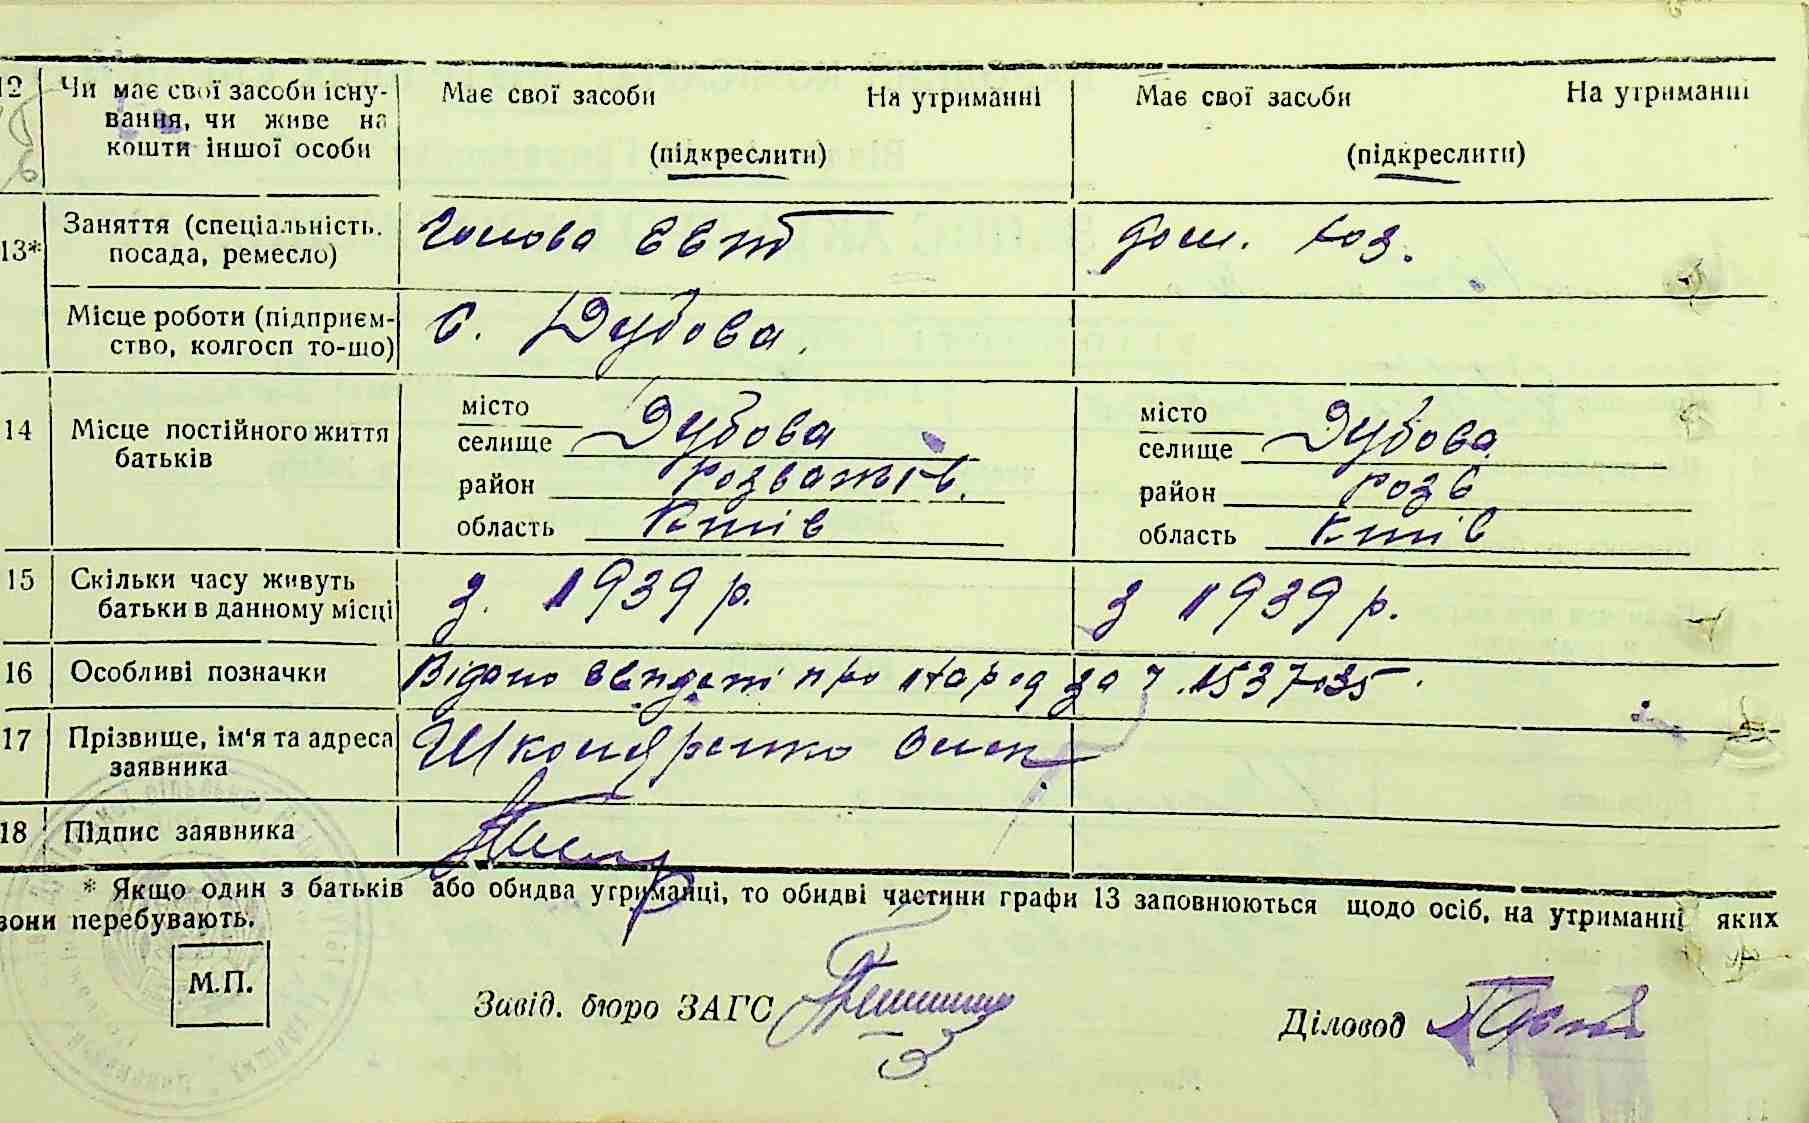 12 Чи має свої засоби існу- Має свої засоби На утриманні Має свої засоби На утриманні
вання, чи живе на
кошти іншої особи (підкреслити) (підкреслити)
13* Заняття (спеціальність. Голова дом. хоз.
посада, ремесло)
Місце роботи (підприєм- с. Дубова.
ство, колгосп то-що)
14 Місце постійного життя місто місто
батьків селище Дубова селище Дубова
район Розважів. район Розв
область Київ область Київ
15 Скільки часу живуть з. 1939 р. з 1939 р.
батьки в данному місці
16 Особливі позначки Видано про народ за ч. 1537035.
17 Прізвище, ім'я та адреса
заявника
18 Підпис заявника
* Якщо один з батьків або обидва утриманці, то обидві частини графи 13 заповнюються щодо осіб, на утриманні яких
вони перебувають.
М.П. Завід. бюро ЗАГС Діловод